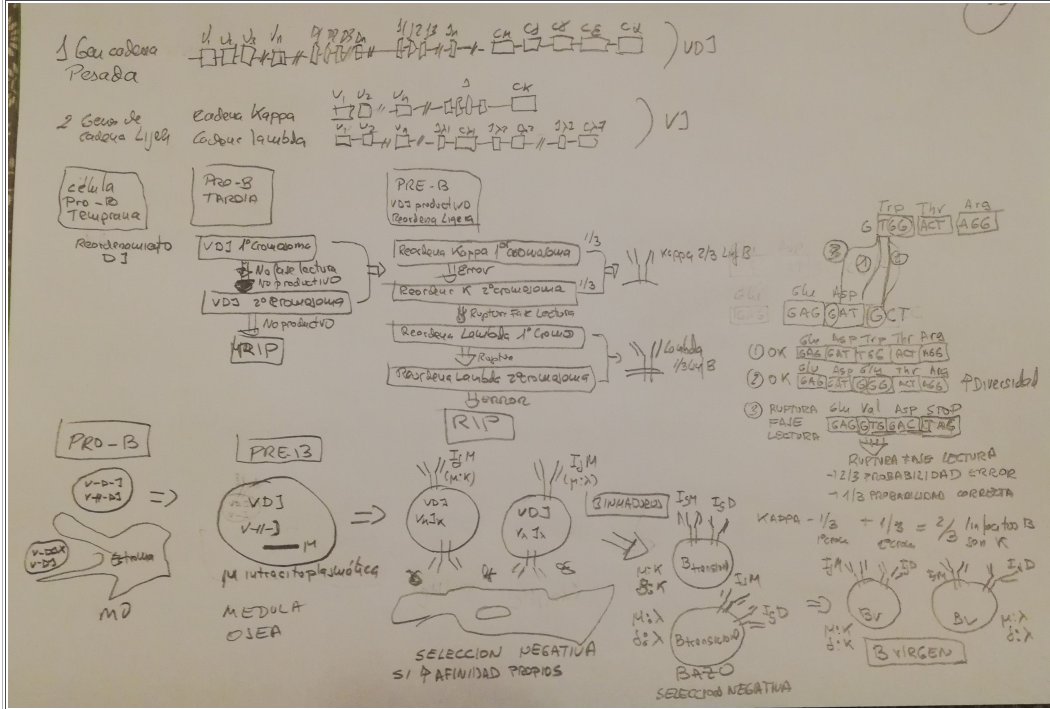 1 Gen cadena
Pesada
V1 V2 V3 Vn D1 D2 D3 Dn J1 J2 J3 Jn Cμ Cδ Cγ Cε Cα
VDJ
2 Genes de
cadena Ligera
Cadena Kappa
V1 V2 Vn J CK
Cadena Lambda
V1 V2 Vn Jλ1 Cλ1 Jλ2 Cλ2 Jλ7 Cλ7
VJ
célula
Pro-B
Temprana
Reordenamiento
DJ
PRO-B
TARDIA
VDJ 1º Cromosoma
No fase lectura
No productivo
VDJ 2º Cromosoma
No productivo
RIP
PRE-B
VDJ productivo
Reordena Ligera
Reordena Kappa 1er cromosoma
1/3
Error
Reordena K 2º cromosoma
1/3
Ruptura Fase Lectura
Reordena Lambda 1º Cromos
Ruptura
Reordena Lambda 2º Cromosoma
ERROR
RIP
Kappa 2/3 Linf B
Lambda
1/3 Linf B
Trp Thr Arg
G TGG ACT AGG
3 1 2
Glu Asp
GAG GAT GCT
1 OK
Glu Asp Trp Thr Arg
GAG GAT TGG ACT AGG
2 OK
Glu Asp Gly Thr Arg
GAG GAT GGG ACT AGG
↑Diversidad
3 RUPTURA
FASE
LECTURA
Glu Val Asp STOP
GAG GTG GAC TAG
RUPTURA FASE LECTURA
→ 2/3 PROBABILIDAD ERROR
→ 1/3 PROBABILIDAD CORRECTA
KAPPA - 1/3 + 1/3 = 2/3 linfocitos B
1º crom 2º crom son K
PRO-B
V-D-J
V-//-DJ
Estroma
MO
PRE-B
VDJ
V-//-J
μ
μ intracitoplasmática
MEDULA
OSEA
IgM
(μ:K)
VDJ
VκJκ
IgM
(μ:λ)
VDJ
VλJλ
SELECCION NEGATIVA
SI ↑ AFINIDAD PROPIOS
B INMADUROS
IgM IgD
B transicional
μ:K
δ:K
IgM
IgD
B transicional
μ:λ
δ:λ
BAZO
SELECCION NEGATIVA
IgM IgD
BV
μ:K
δ:K
IgM IgD
BV
μ:λ
δ:λ
B VIRGEN